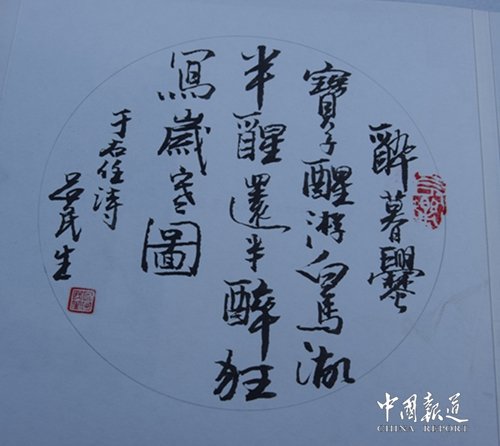 醉暮爨
寶子醒游白馬湖
半醒還半醉狂
寫歲寒圖
于右任詩
民生
中國報道
CHINA REPORT